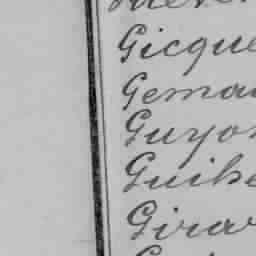 Gicque
Gema
Guyon
Guibe
Girar